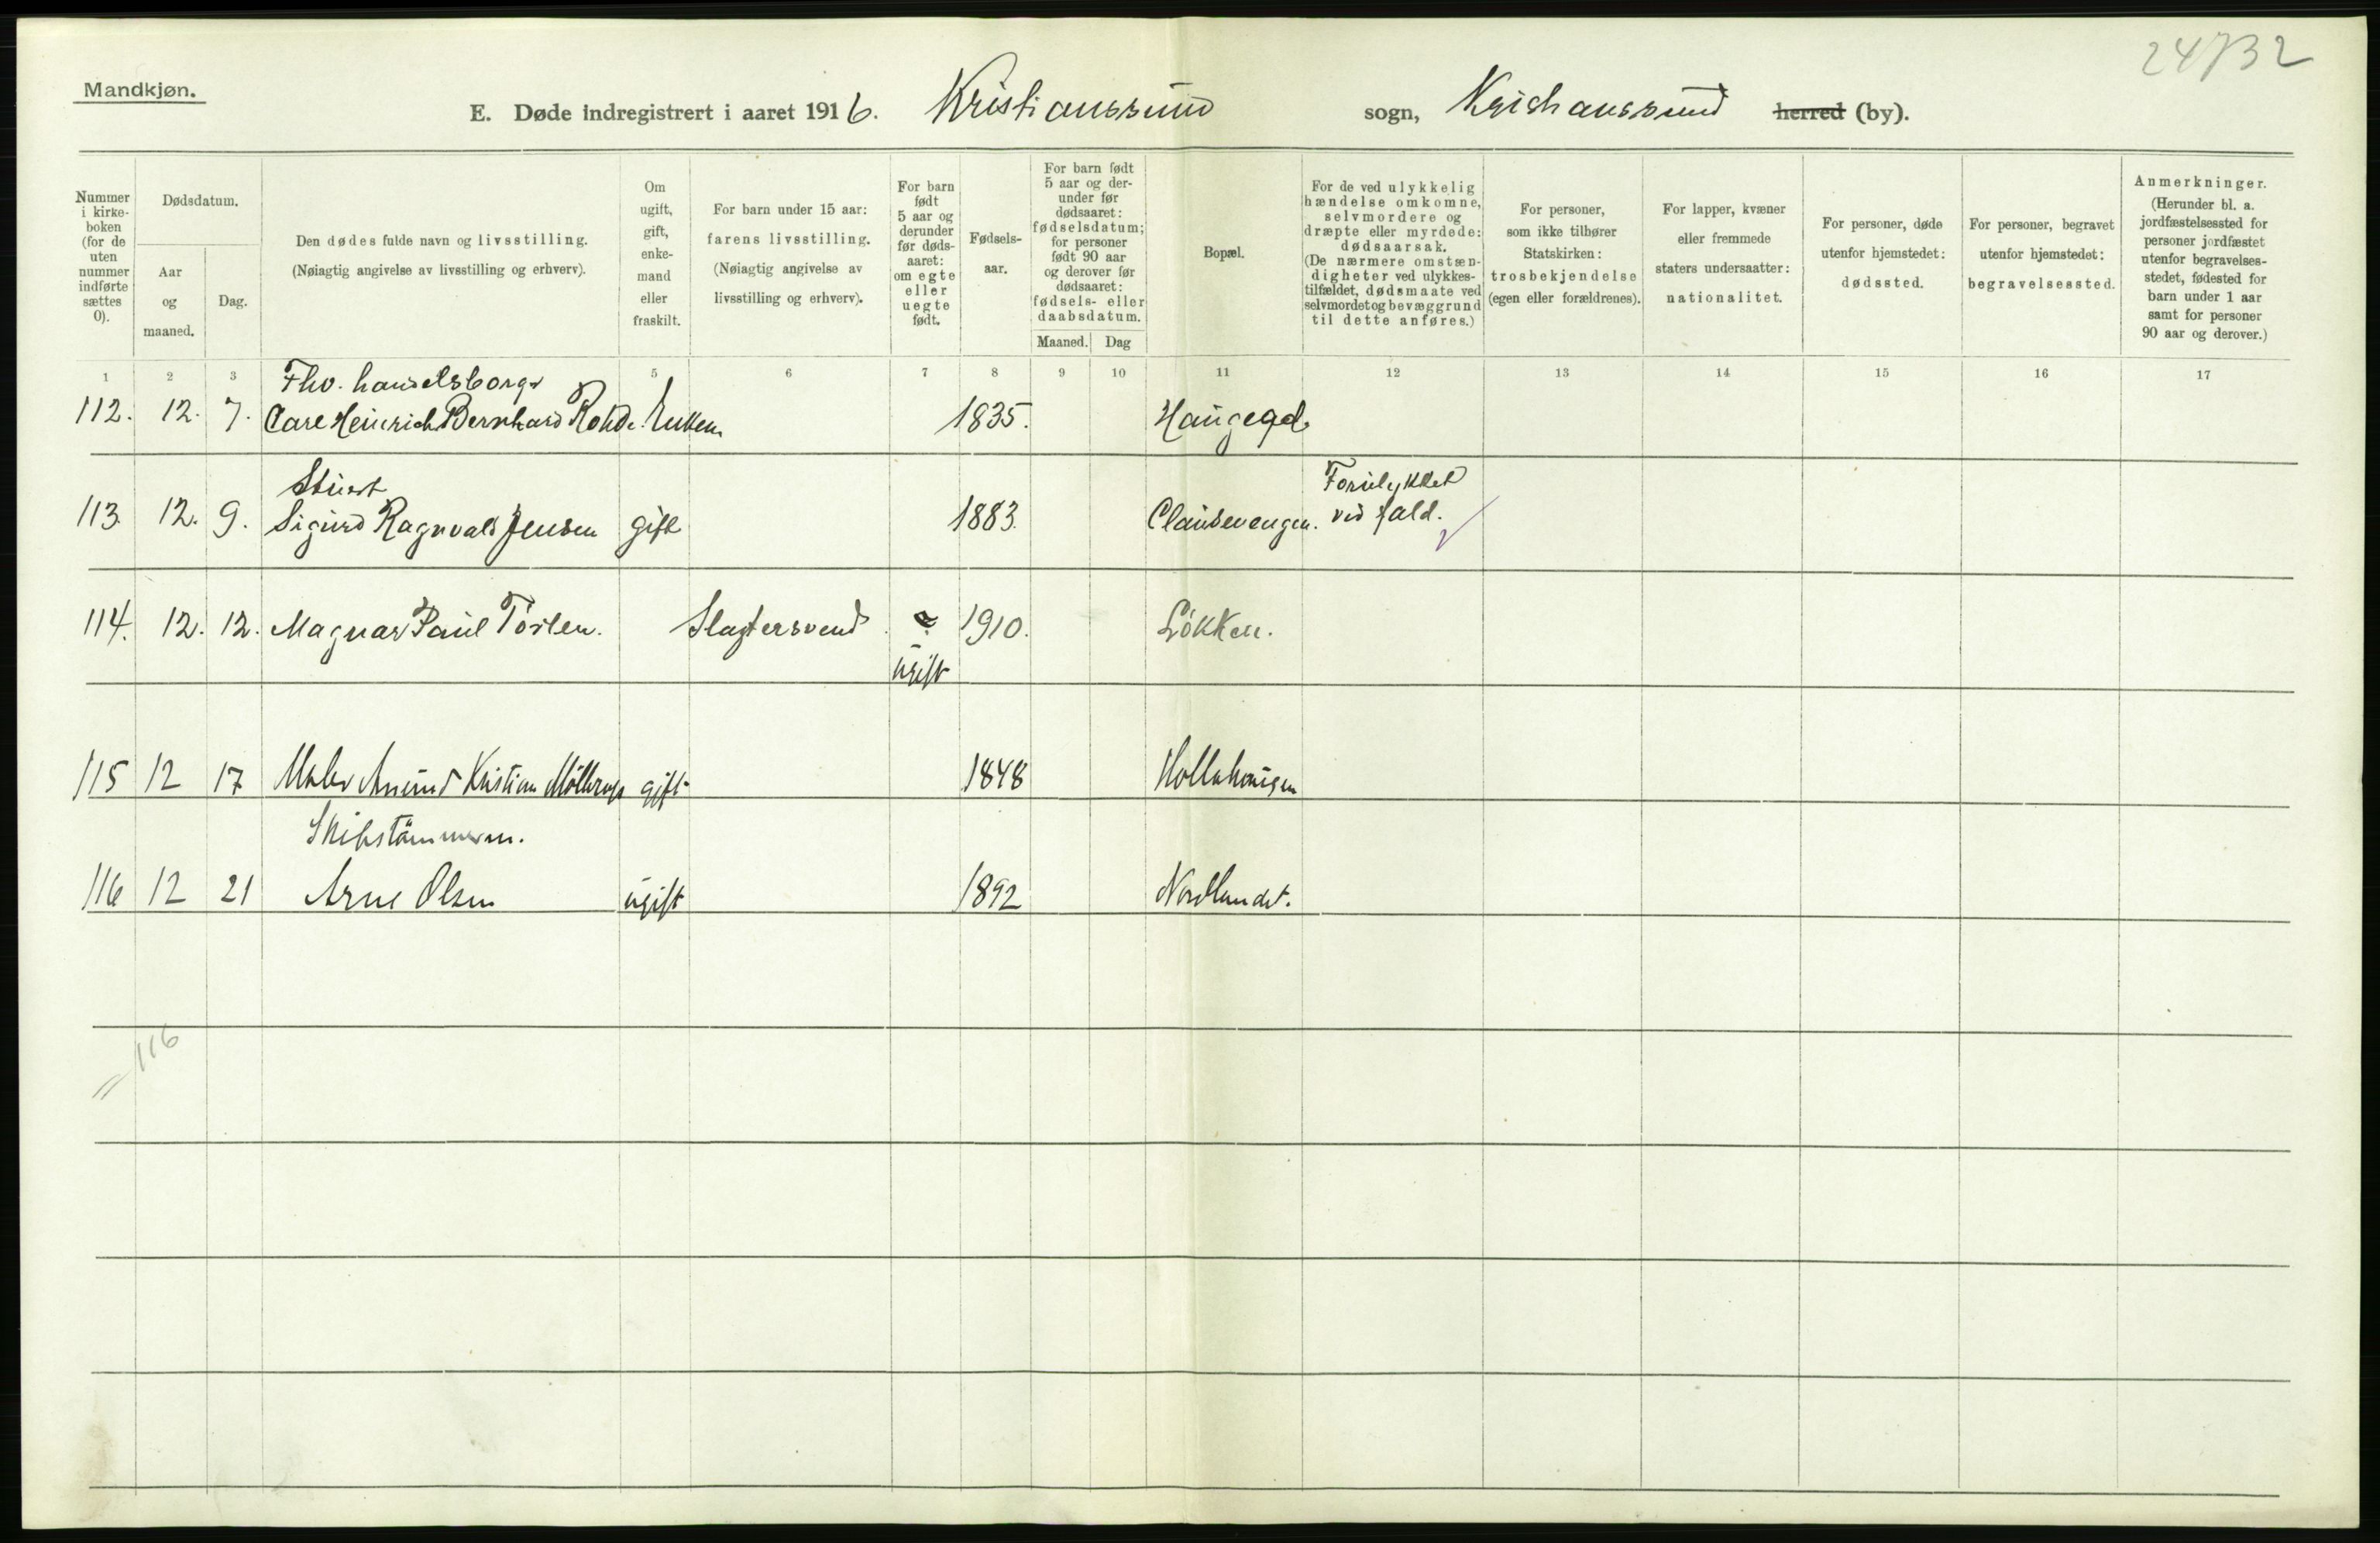 24732
Mandkjøn.
E. Døde indregistrert i aaret 1916. Kristianssund sogn, Kristianssund herred (by).
Nummer i kirke-boken (for de uten nummer indførte sættes 0).
Dødsdatum.
Aar og maaned.
Dag.
Den dødes fulde navn og livsstilling.
(Nøiagtig angivelse av livsstilling og erhverv).
Om ugift, gift, enke-mand eller fraskilt.
For barn under 15 aar:
farens livsstilling.
(Nøiagtig angivelse av
livsstilling og erhverv).
For barn født 5 aar og derunder før døds-aaret: om egte eller uegte født.
Fødsels-aar.
For barn født 5 aar og der-under før dødsaaret: fødselsdatum; for personer født 90 aar og derover før dødsaaret: fødsels- eller daabsdatum.
Maaned. Dag
Bopæl.
For de ved ulykkelig hændelse omkomne, selvmordere og dræpte eller myrdede: dødsaarsak. (De nærmere omstæn-digheter ved ulykkes-tilfældet, dødsmaate ved selvmordet og bevæggrund til dette anføres.)
For personer, som ikke tilhører Statskirken: trosbekjendelse (egen eller forældrenes).
For lapper, kvæner eller fremmede staters undersaatter: nationalitet.
For personer, døde utenfor hjemstedet: dødssted.
For personer, begravet utenfor hjemstedet: begravelsessted.
Anmerkninger. (Herunder bl. a. jordfæstelsessted for personer jordfæstet utenfor begravelses-stedet, fødested for barn under 1 aar samt for personer 90 aar og derover.)
1 2 3 5 6 7 8 9 10 11 12 13 14 15 16 17
Fhv. handelsborger
112. 12. 7. Carl Heinrich Bernhard Rohde. Enkem 1835. Haugegd.
Stuert Forulykket
113. 12. 9. Sigurd Ragnvald Jensen gift 1883. Clausenengen. ved fald.
114. 12. 12. Magnar Paul Törlen. Slagtersvend. e 1910. Lökken.
ugift
115 12 17 Maler Amund Kristian Möllerop gift 1848 Hollahaugen
Skibstömmerm.
116 12 21 Arne Olsen ugift 1892 Nordlandet.
116